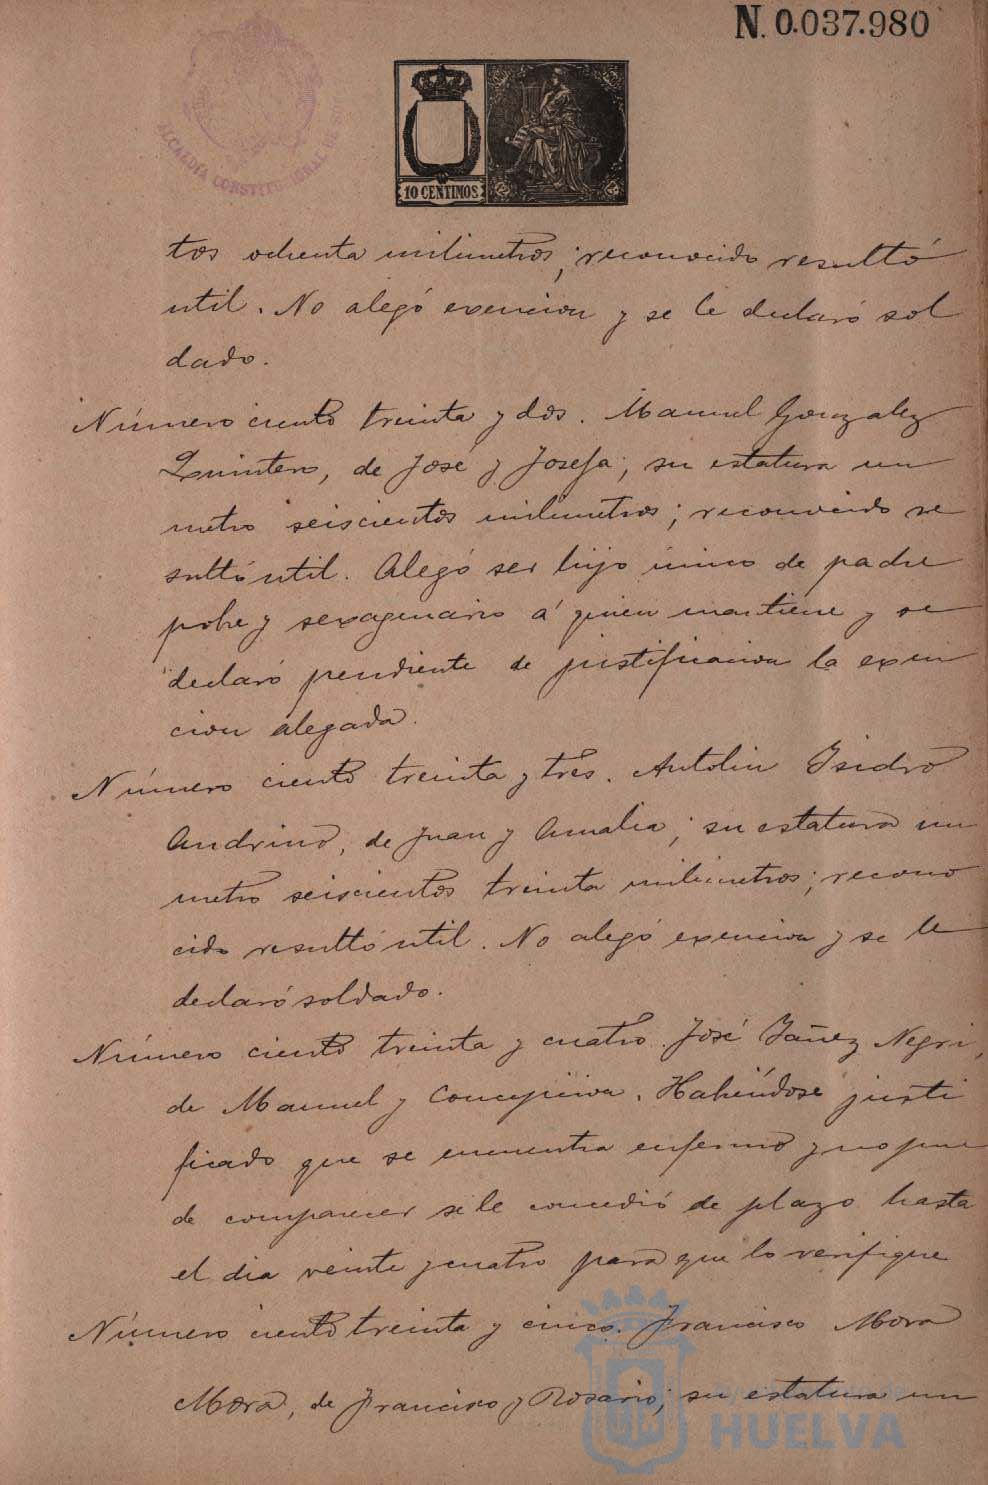 N. 0.037.980
ALCALDÍA CONSTITUCIONAL DE
10 CENTIMOS
tos ochenta milimetros; reconocido resultó
util. No alegó exencion y se le declaró sol
dado.
Número ciento treinta y dos. Manuel Gonzalez
Quintero, de José y Josefa; su estatura un
metro seiscientos milimetros; reconocido re
sultó util. Alegó ser hijo único de padre
pobre y sexagenario á quien mantiene y se
declaró pendiente de justificacion la exen
cion alegada.
Número ciento treinta y tres. Antolin Isidro
Andrino, de Juan y Amalia; su estatura un
metro seiscientos treinta milimetros; recono
cido resultó util. No alegó exencion y se le
declaró soldado.
Número ciento treinta y cuatro. José Yañez Negri,
de Manuel y Concepcion. Habiéndose justi
ficado que se encuentra enfermo y no pue
de comparecer se le concedió de plazo hasta
el dia veinte y cuatro para que lo verifique
Número ciento treinta y cinco. Francisco Mora
Mora, de Francisco y Rosario; su estatura un
HUELVA